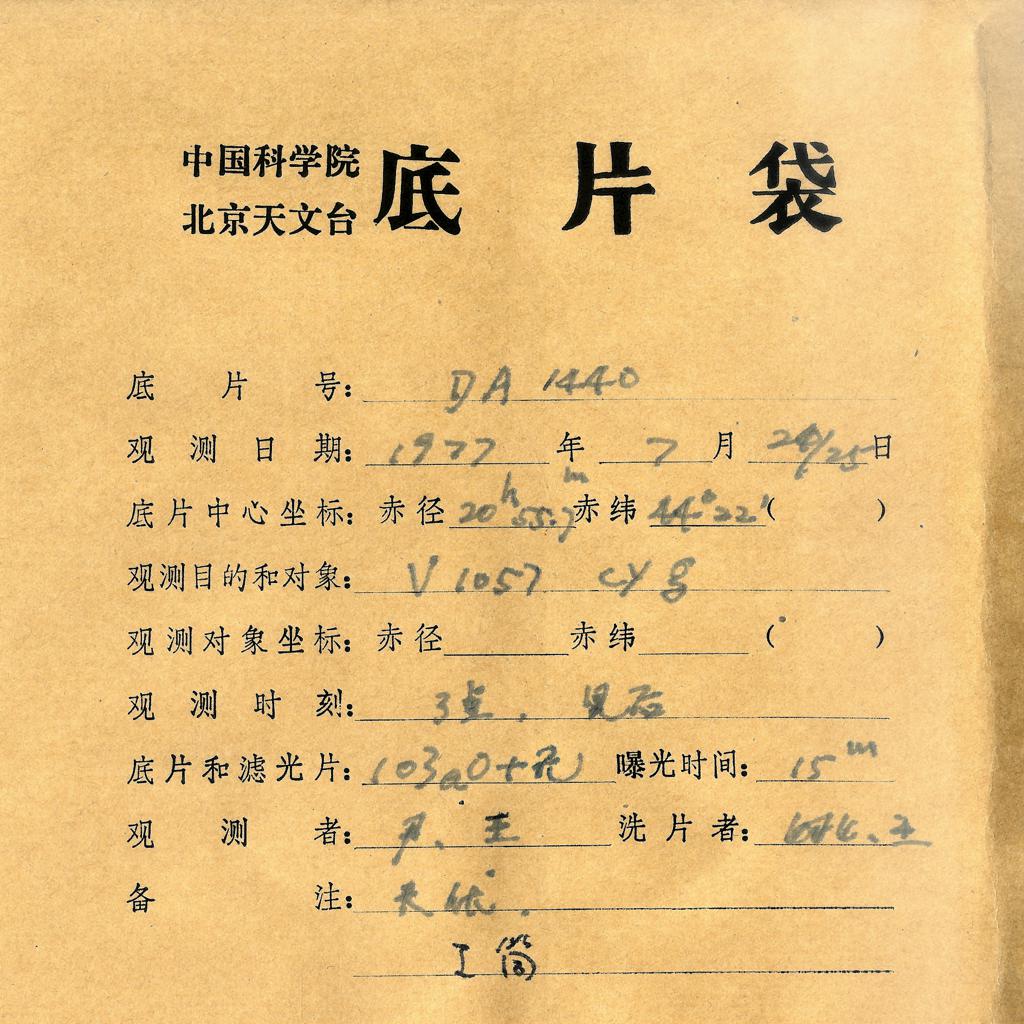 中国科学院
北京天文台
底片袋
底片号: DA 1440
观测日期: 1977年 7月 24/25日
底片中心坐标: 赤径 20h55.m7 赤纬 44°22′( )
观测目的和对象: V 1057 cyg
观测对象坐标: 赤径 赤纬 ( )
观测时刻: 3点.
底片和滤光片: 103aO+无 曝光时间: 15m
观测者: 尹、王
洗片者: 王
备注: 天